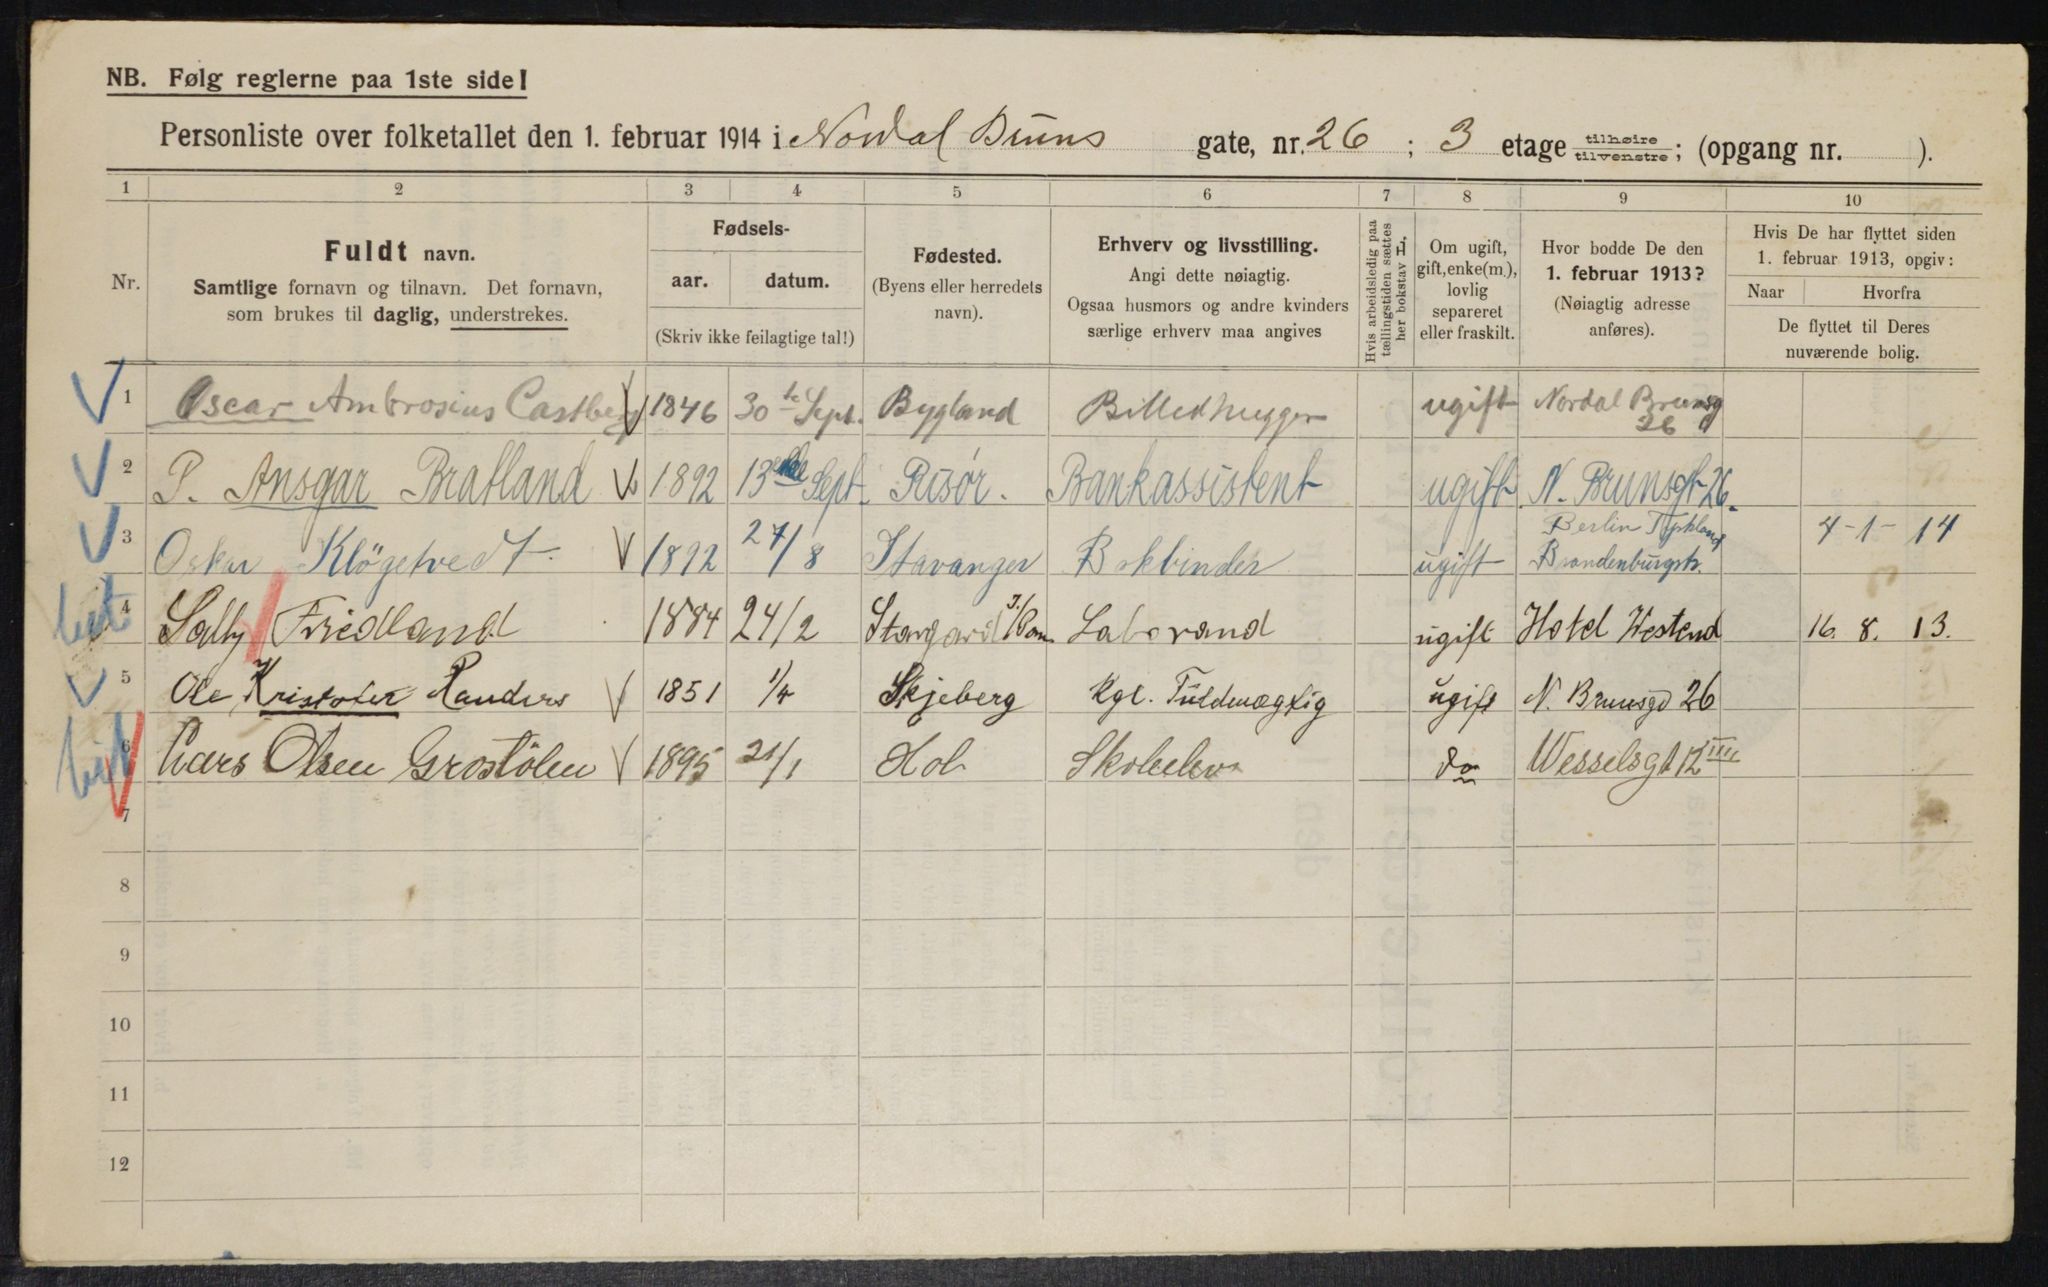 NB. Følg reglerne paa 1ste side!
Personliste over folketallet den 1. februar 1914 i Nordal Bruns gate, nr. 26 ; 3 etage tilhøire tilvenstre ; (opgang nr. ).
1 2 3 4 5 6 7 8 9 10
Nr.
Fuldt navn.
Samtlige fornavn og tilnavn. Det fornavn,
som brukes til daglig, understrekes.
Fødsels-
aar. datum.
(Skriv ikke feilagtige tal!)
Fødested.
(Byens eller herredets
navn).
Erhverv og livsstilling.
Angi dette nøiagtig.
Ogsaa husmors og andre kvinders
særlige erhverv maa angives
Hvis arbeidsledig paa
tællingstiden sættes
her bokstav L.
Om ugift,
gift, enke(m.),
lovlig
separeret
eller fraskilt.
Hvor bodde De den
1. februar 1913?
(Nøiagtig adresse
anføres).
Hvis De har flyttet siden
1. februar 1913, opgiv:
Naar Hvorfra
De flyttet til Deres
nuværende bolig.
1 Oscar Ambrosius Castberg 1846 30te Sept. Bygland Billedhugger ugift Nordal Brunsg 26
2 P. Ansgar Bratland 1892 13 Sept. Risør. Bankassistent ugift N. Brunsgt 26.
3 Oskar Klögetvedt 1892 27/8 Stavanger Bokbinder ugift Berlin Tyskland Brandenburgstr. 4-1-14
4 Sally Friedland 1884 24/2 Stargard I./Pom Laborand ugift Hotel Westend 16. 8. 13.
5 Ole Kristofer Randers 1851 1/4 Skjeberg Kgl. Fuldmægtig ugift N. Brunsgd 26
6 Lars Olsen Grostölen 1895 21/1 Hol Skoleelev do Wesselsgt 12 IIII
7
8
9
10
11
12